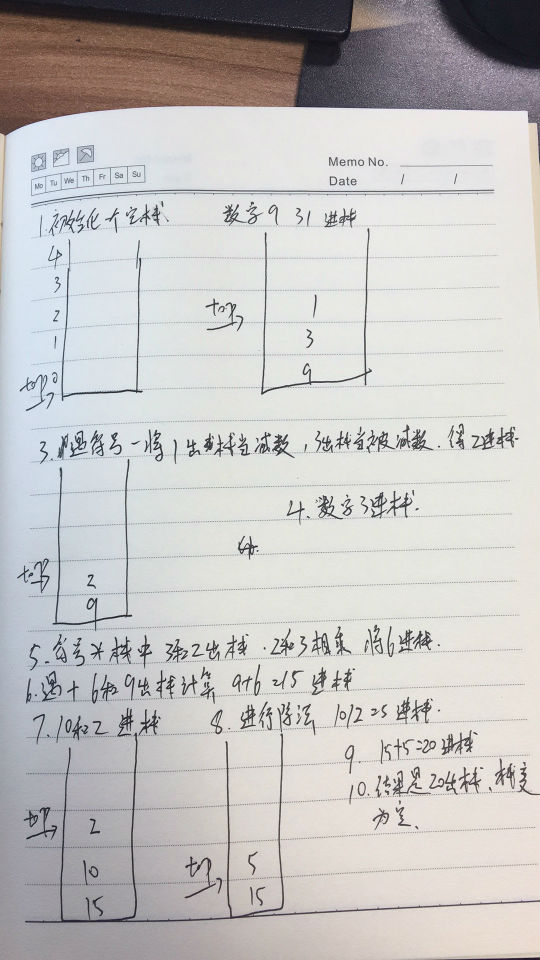 Memo No.
Mo Tu We Th Fr Sa Su
Date / /
1.初始化一个空栈. 数字9 3 1 进栈
4
3
2
1
0
top
top
1
3
9
3.遇符号-将1出栈当减数,3出栈当被减数.得2进栈.
4.数字3进栈.
top
2
9
5.符号*栈中 3和2出栈.2和3相乘 将6进栈.
6.遇+ 6和9出栈计算 9+6=15 进栈
7.10和2 进栈 8.进行除法 10/2=5进栈.
9. 15+5=20进栈
10.结果是20出栈、栈变
为空、
top
2
10
15
top
5
15